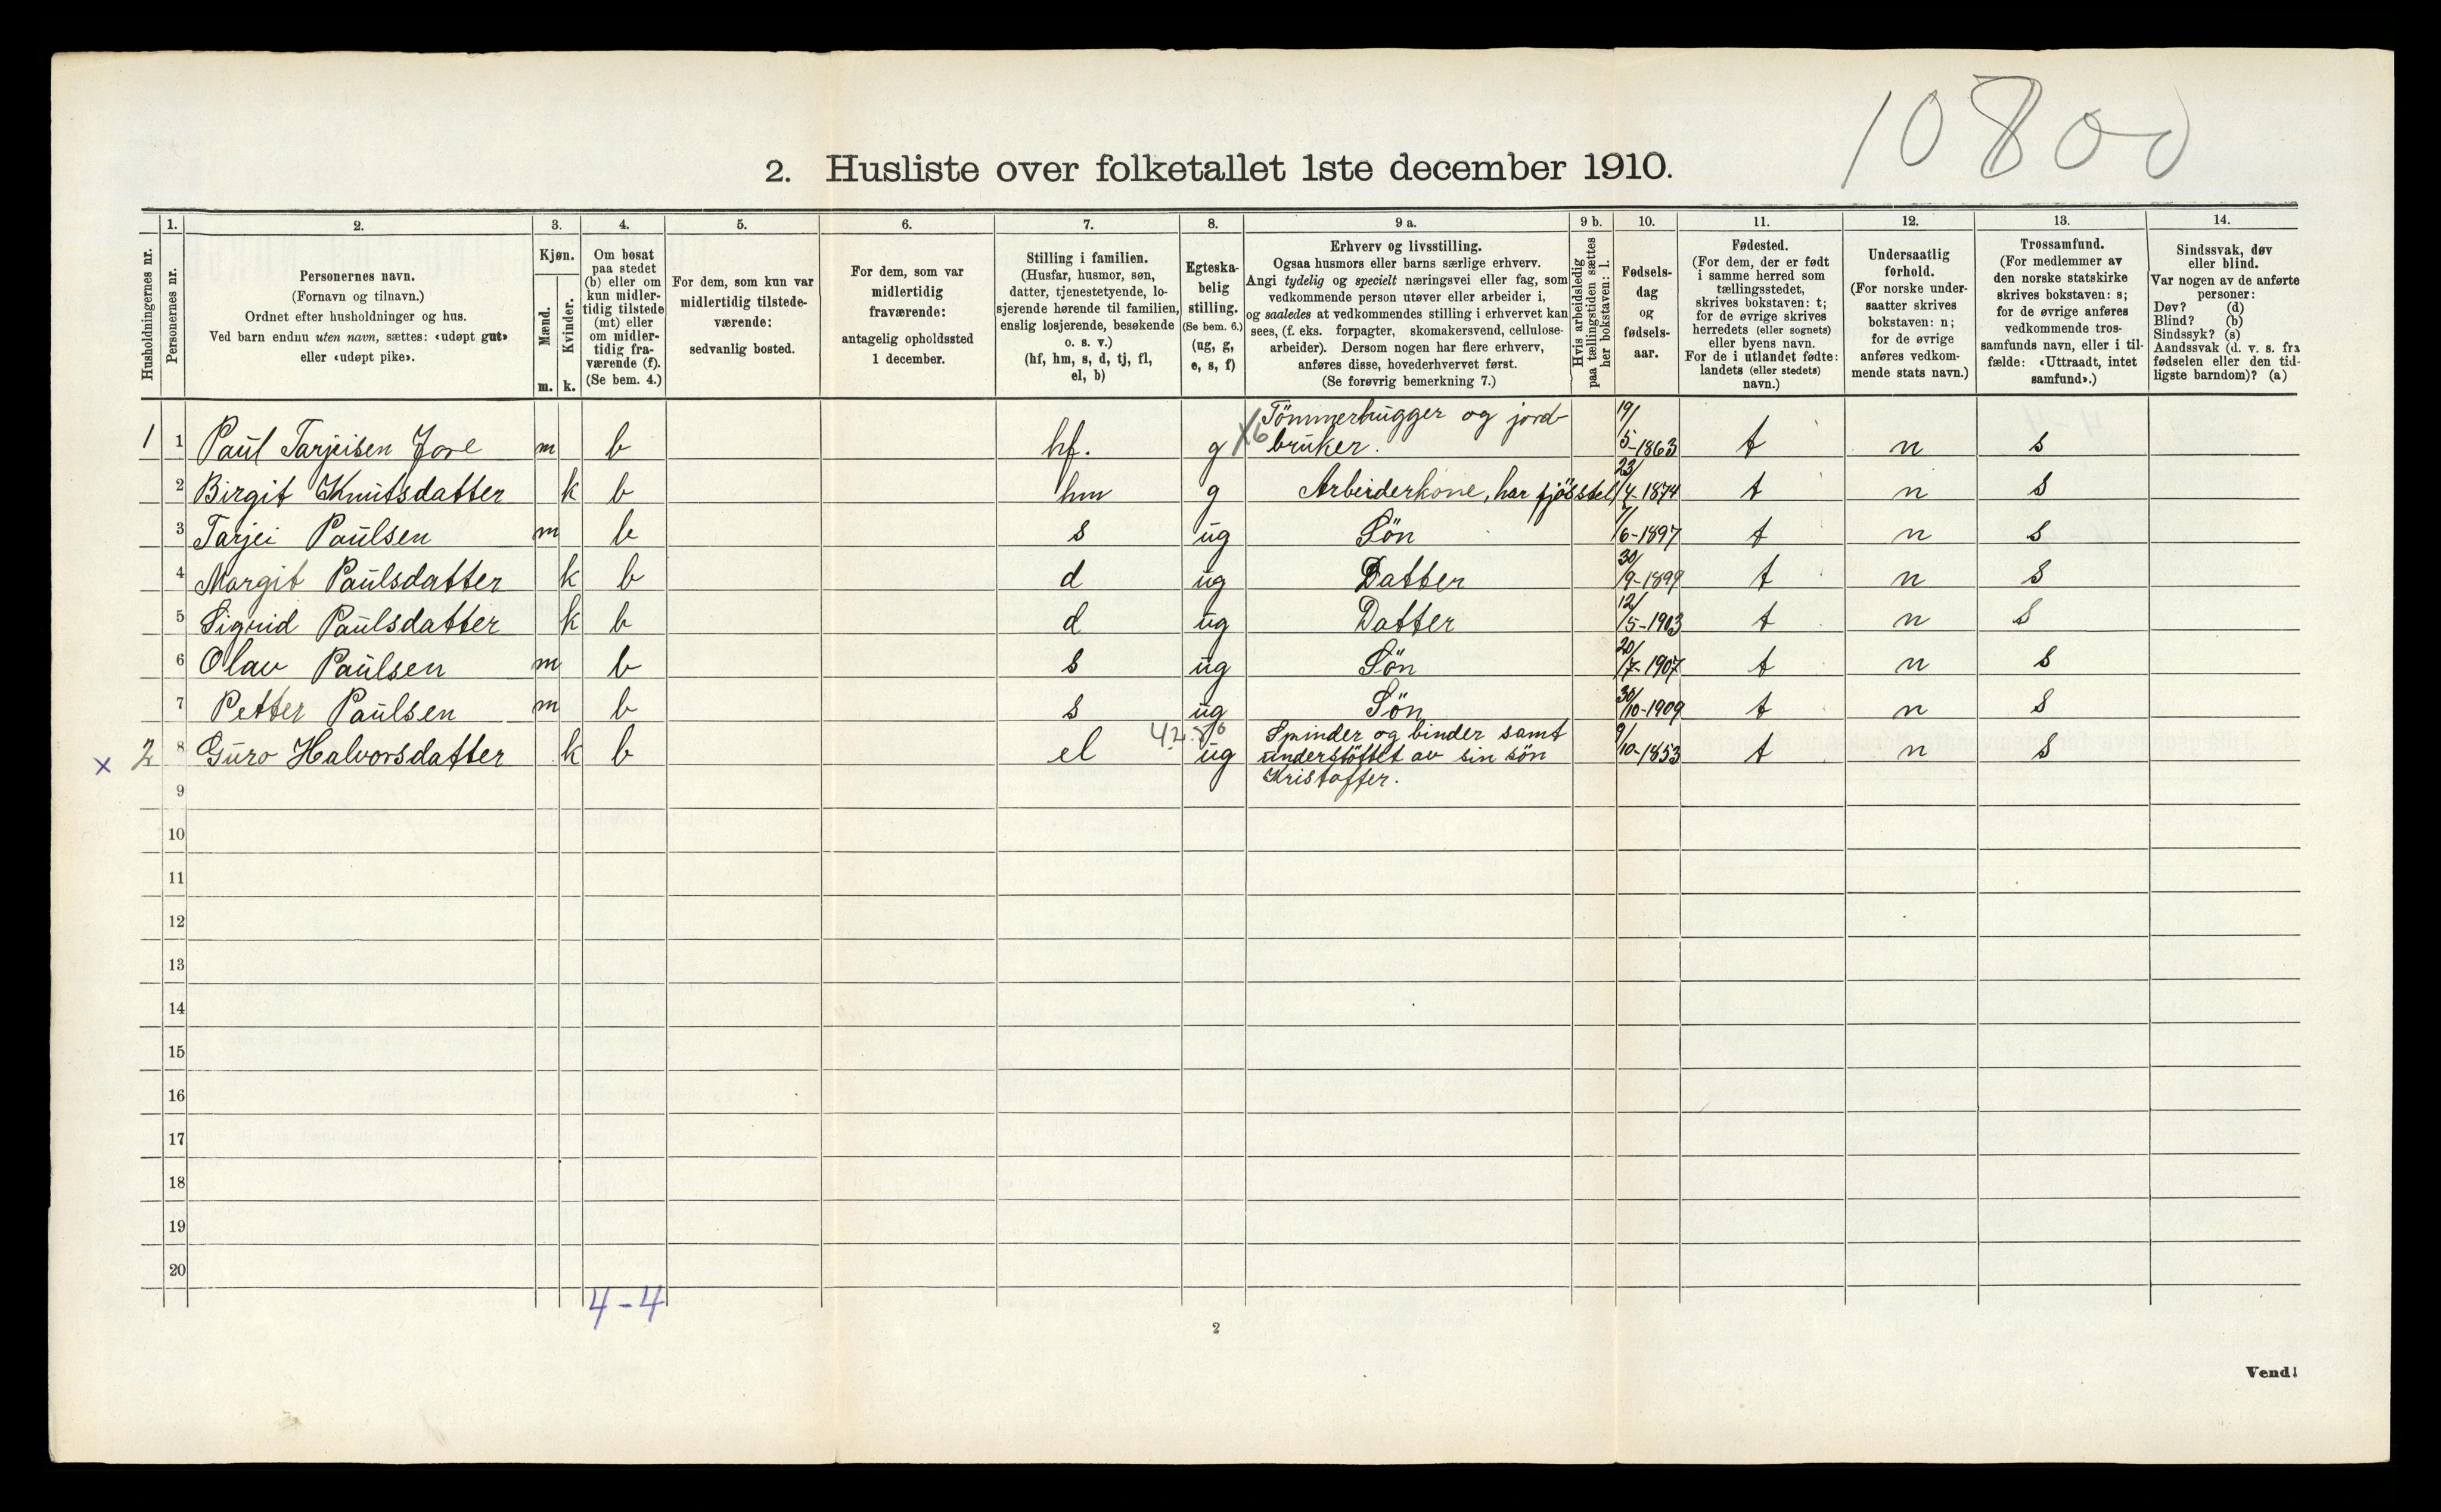 10800
2. Husliste over folketallet 1ste december 1910.
Husholdningernes nr.
1.
Personernes nr.
2.
Personernes navn.
(Fornavn og tilnavn.)
Ordnet efter husholdninger og hus.
Ved barn endnu uten navn, sættes: «udøpt gut»
eller «udøpt pike».
3.
Kjøn.
Mænd.
m.
Kvinder.
k.
4.
Om bosat
paa stedet
(b) eller om
kun midler-
tidig tilstede
(mt) eller
om midler-
tidig fra-
værende (f).
(Se bem. 4.)
5.
For dem, som kun var
midlertidig tilstede-
værende:
sedvanlig bosted.
6.
For dem, som var
midlertidig
fraværende:
antagelig opholdssted
1 december.
7.
Stilling i familien.
(Husfar, husmor, søn,
datter, tjenestetyende, lo-
sjerende hørende til familien,
enslig losjerende, besøkende
o. s. v.)
(hf, hm, s, d, tj, fl,
el, b)
8.
Egteska-
belig
stilling.
(Se bem. 6.)
(ug, g,
e, s, f)
9 a.
Erhverv og livsstilling.
Ogsaa husmors eller barns særlige erhverv.
Angi tydelig og specielt næringsvei eller fag, som
vedkommende person utøver eller arbeider i,
og saaledes at vedkommendes stilling i erhvervet kan
sees, (f. eks. forpagter, skomakersvend, cellulose-
arbeider). Dersom nogen har flere erhverv,
anføres disse, hovederhvervet først.
(Se forøvrig bemerkning 7.)
9 b.
Hvis arbeidsledig
paa tællingstiden sættes
her bokstaven: l.
10.
Fødsels-
dag
og
fødsels-
aar.
11.
Fødested.
(For dem, der er født
i samme herred som
tællingsstedet,
skrives bokstaven: t;
for de øvrige skrives
herredets (eller sognets)
eller byens navn.
For de i utlandet fødte:
landets (eller stedets)
navn.)
12.
Undersaatlig
forhold.
(For norske under-
saatter skrives
bokstaven: n;
for de øvrige
anføres vedkom-
mende stats navn.)
13.
Trossamfund.
(For medlemmer av
den norske statskirke
skrives bokstaven: s;
for de øvrige anføres
vedkommende tros-
samfunds navn, eller i til-
fælde: «Uttraadt, intet
samfund».)
14.
Sindssvak, døv
eller blind.
Var nogen av de anførte
personer:
Døv? (d)
Blind? (b)
Sindssyk? (s)
Aandssvak (d. v. s. fra
fødselen eller den tid-
ligste barndom)? (a)
1 1 Paul Tarjeisen Jore m b hf. g X6 Tömmerhugger og jord-
bruker. 19/5-1863 t n s
2 Birgit Knutsdatter k b hm g Arbeiderkone, har fjösstel 23/4-1874 t n s
3 Tarjei Paulsen m b s ug Sön 7/6-1897 t n s
4 Margit Paulsdatter k b d ug Datter 30/9-1899 t n s
5 Sigrid Paulsdatter k b d ug Datter 12/5-1903 t n s
6 Olav Paulsen m b s ug Sön 20/7-1907 t n s
7 Petter Paulsen m b s ug Sön 30/10-1909 t n s
x 2 8 Guro Halvorsdatter k b el ug Spinder og binder samt
understöttet av sin sön
Kristoffer. 9/10-1853 t n s
9
10
11
12
13
14
15
16
17
18
19
20
4-4
2
Vend!